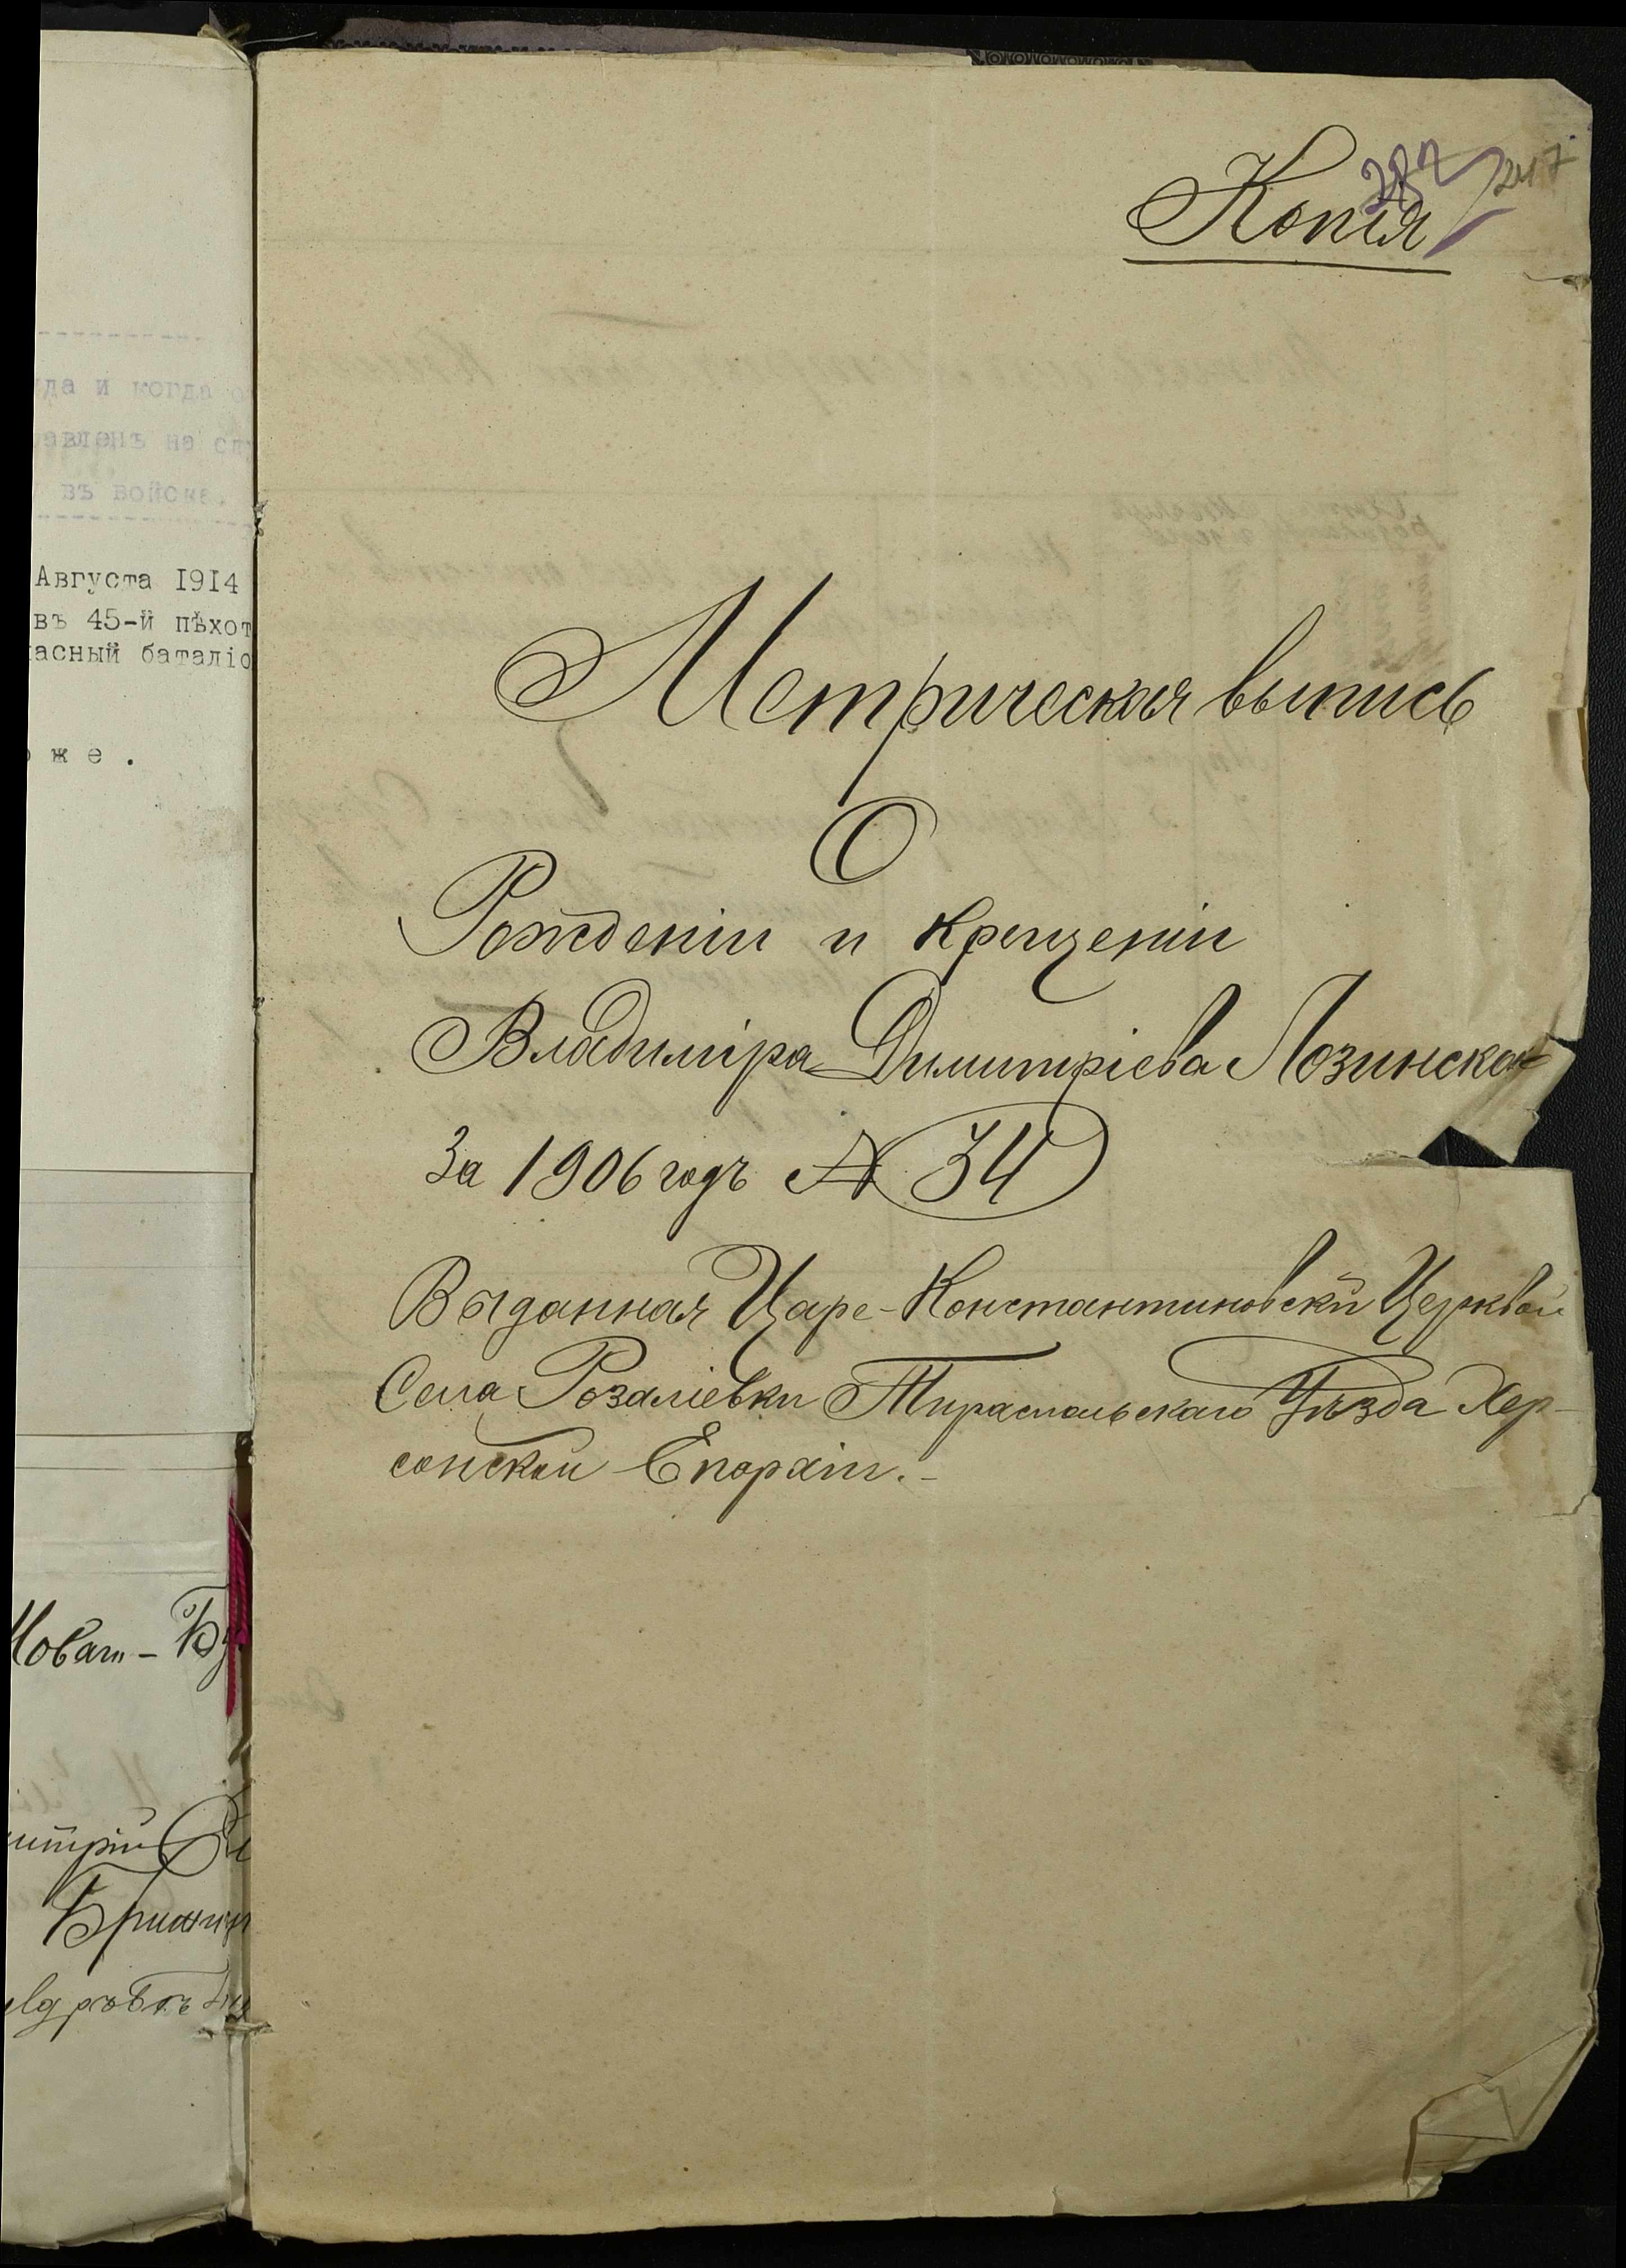 да и когда о
авленъ на сл
въ войска.
Августа 1914
въ 45-й пѣхот
асный баталіо
же.
Новая-Бу
итрій
247
Копія
Метрическая выпись
О
Рожденіи и крещеніи
Владиміра Димитріева Лозинска
За 1906 годъ № 34
Выданная Царе-Константиновскй Церквой
Села Розаліевки Тираспольскаго Уѣзда Хер-
сонской Епархіи.-